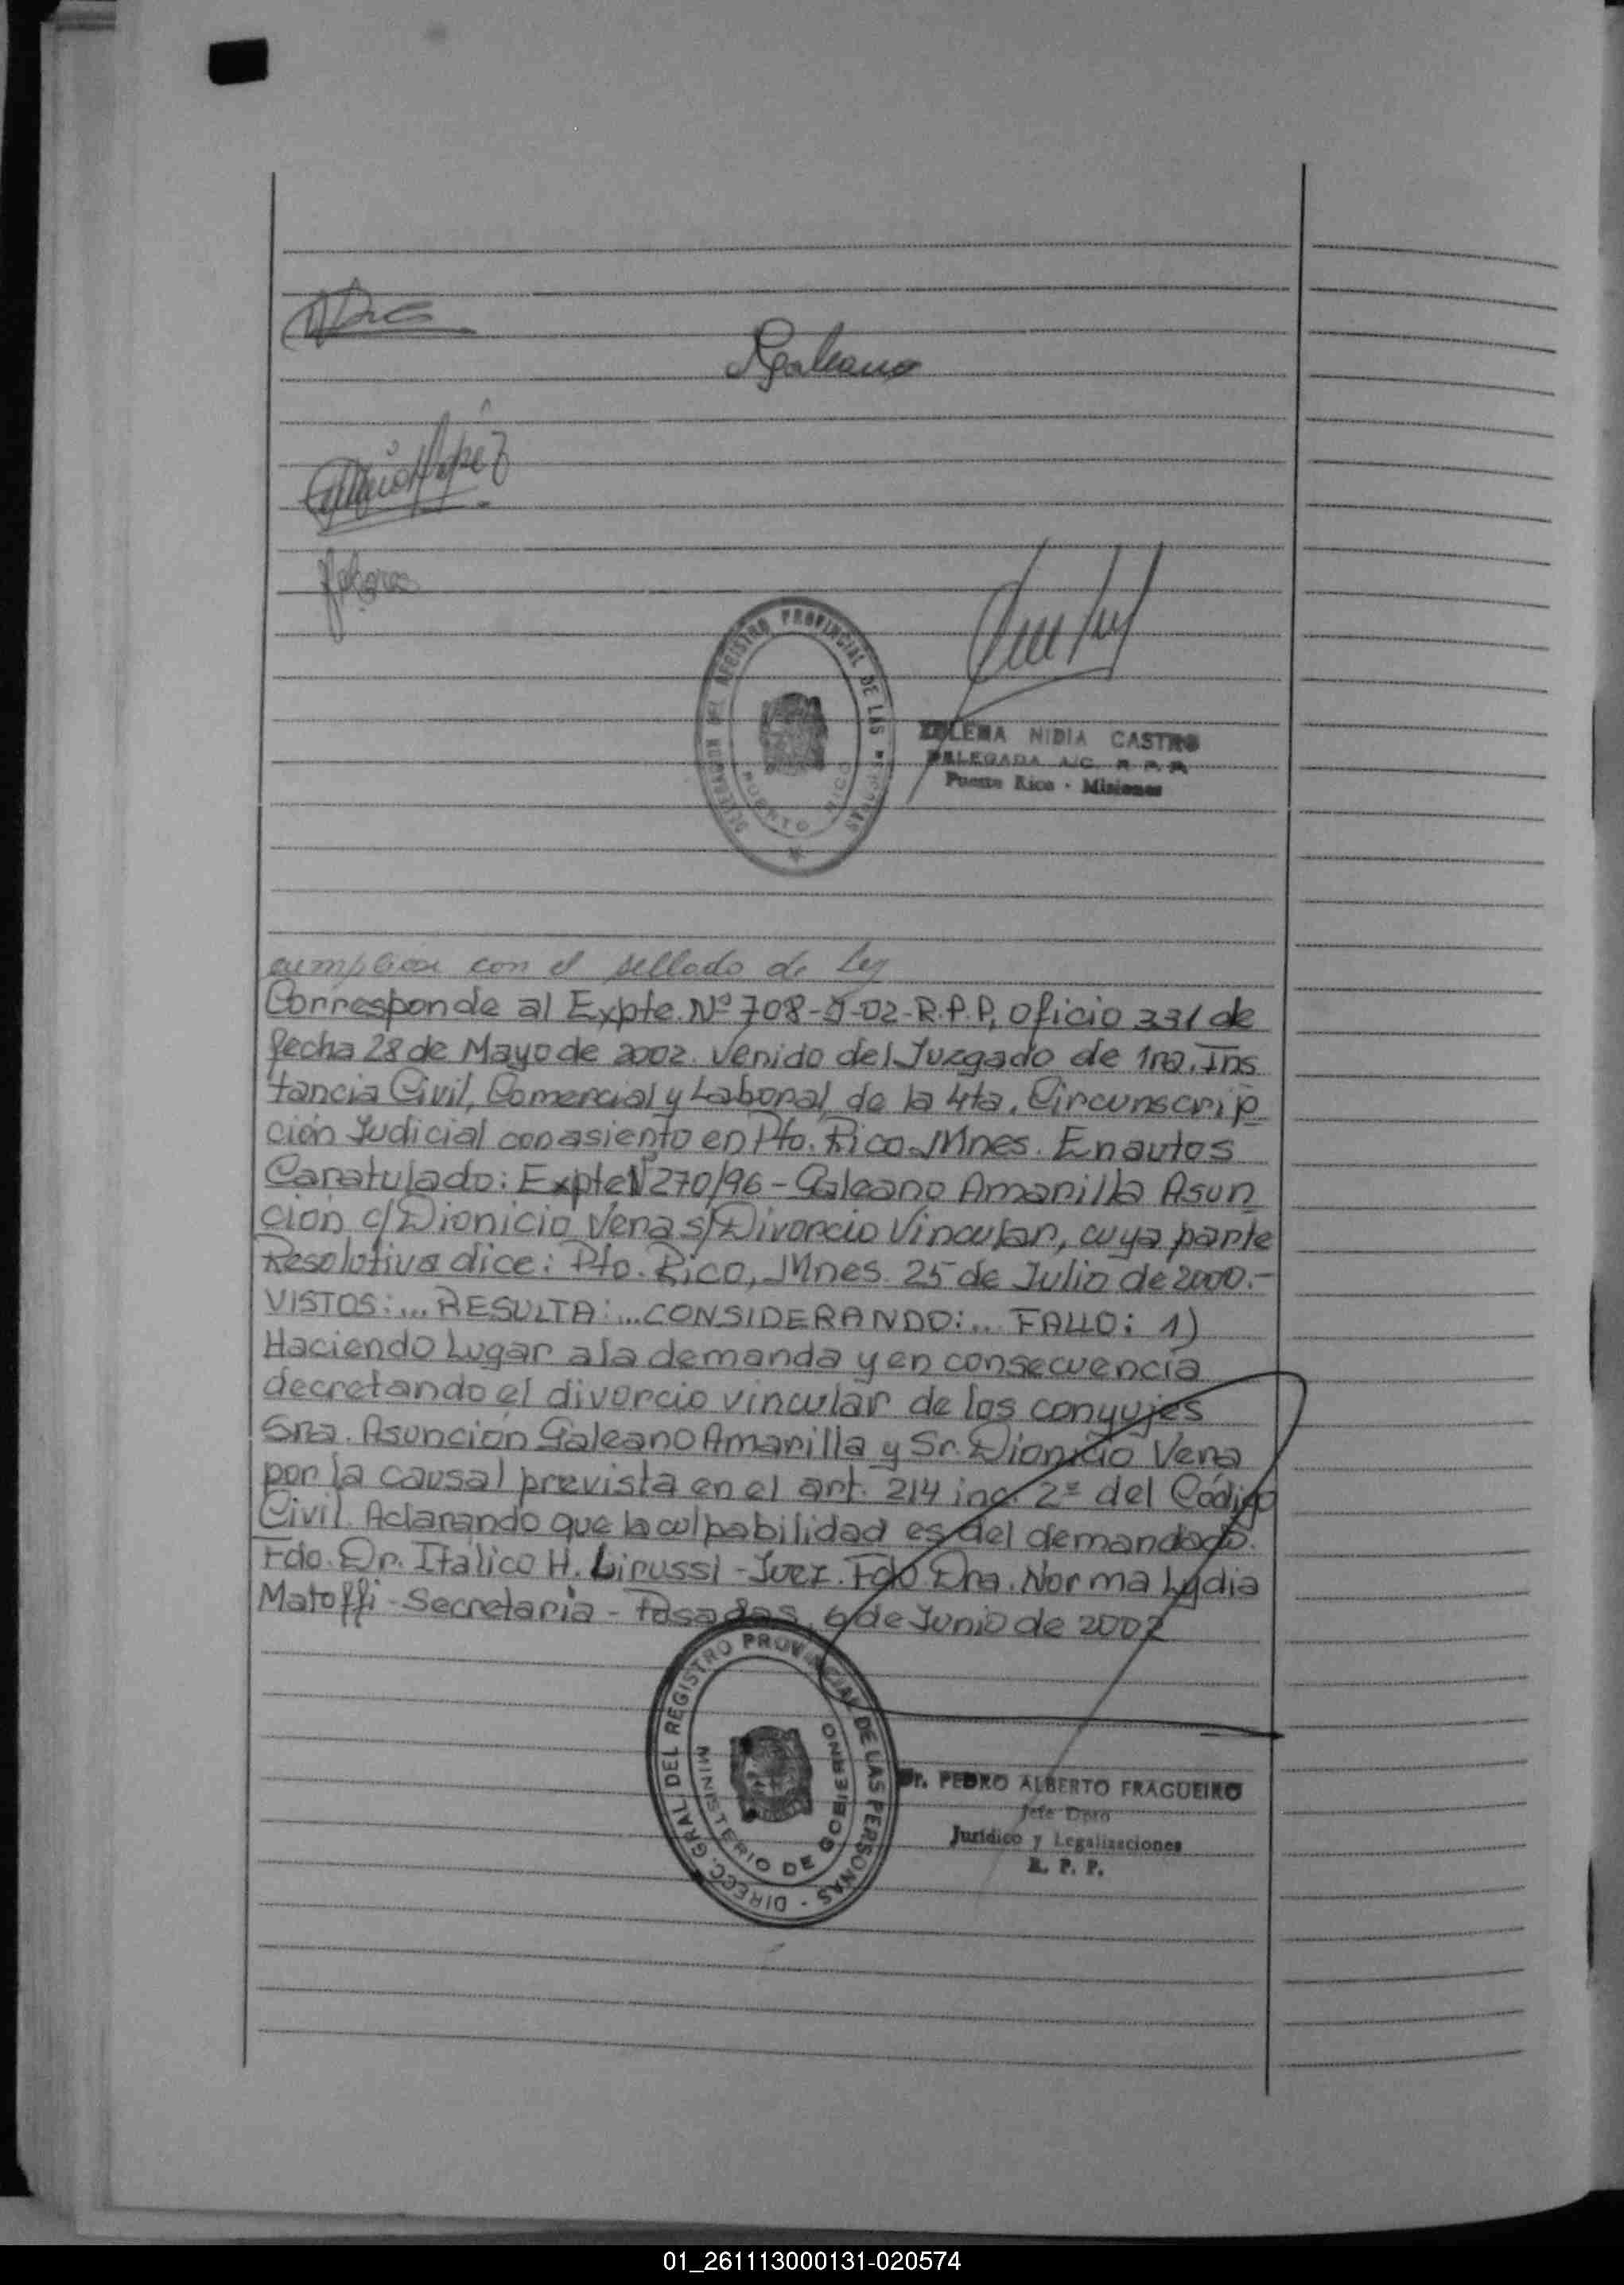 Galeano
López
DELEGACION DEL REGISTRO PROVINCIAL DE LAS PERSONAS
PUERTO RICO
NIDIA CASTRO
DELEGADA A/C. R. P. P.
Puerto Rico - Misiones
cumplieron con el sellado de Ley
Corresponde al Expte. Nº 708-J-02-R.P.P, oficio 331 de
fecha 28 de Mayo de 2002. venido del Juzgado de 1ra. Ins
tancia Civil, Comercial y Laboral, de la 4ta. Circunscrip
ción Judicial con asiento en Pto. Rico-Mnes. En autos
Caratulado: Expte Nº 270/96 - Galeano Amarilla Asun
ción c/ Dionicio Vera s/ Divorcio Vincular, cuya parte
Resolutiva dice: Pto. Rico, Mnes. 25 de Julio de 2000.-
VISTOS:... RESULTA:... CONSIDERANDO:... FALLO: 1)
Haciendo Lugar a la demanda y en consecuencia
decretando el divorcio vincular de los conyujes
Sra. Asunción Galeano Amarilla y Sr. Dionicio Vera
por la causal prevista en el art. 214 inc. 2º del Código
Civil. Aclarando que la culpabilidad es del demandado.
Fdo. Dr. Itálico H. Lirussi - Juez. Fdo Dra. Norma Lydia
Matoffi - Secretaria - Posadas, 6 de Junio de 2002
DIRECC. GRAL. DEL REGISTRO PROVINCIAL DE LAS PERSONAS -
MINISTERIO DE GOBIERNO
Dr. PEDRO ALBERTO FRAGUEIRO
Jefe Dpto
Jurídico y Legalizaciones
R. P. P.
01_261113000131-020574